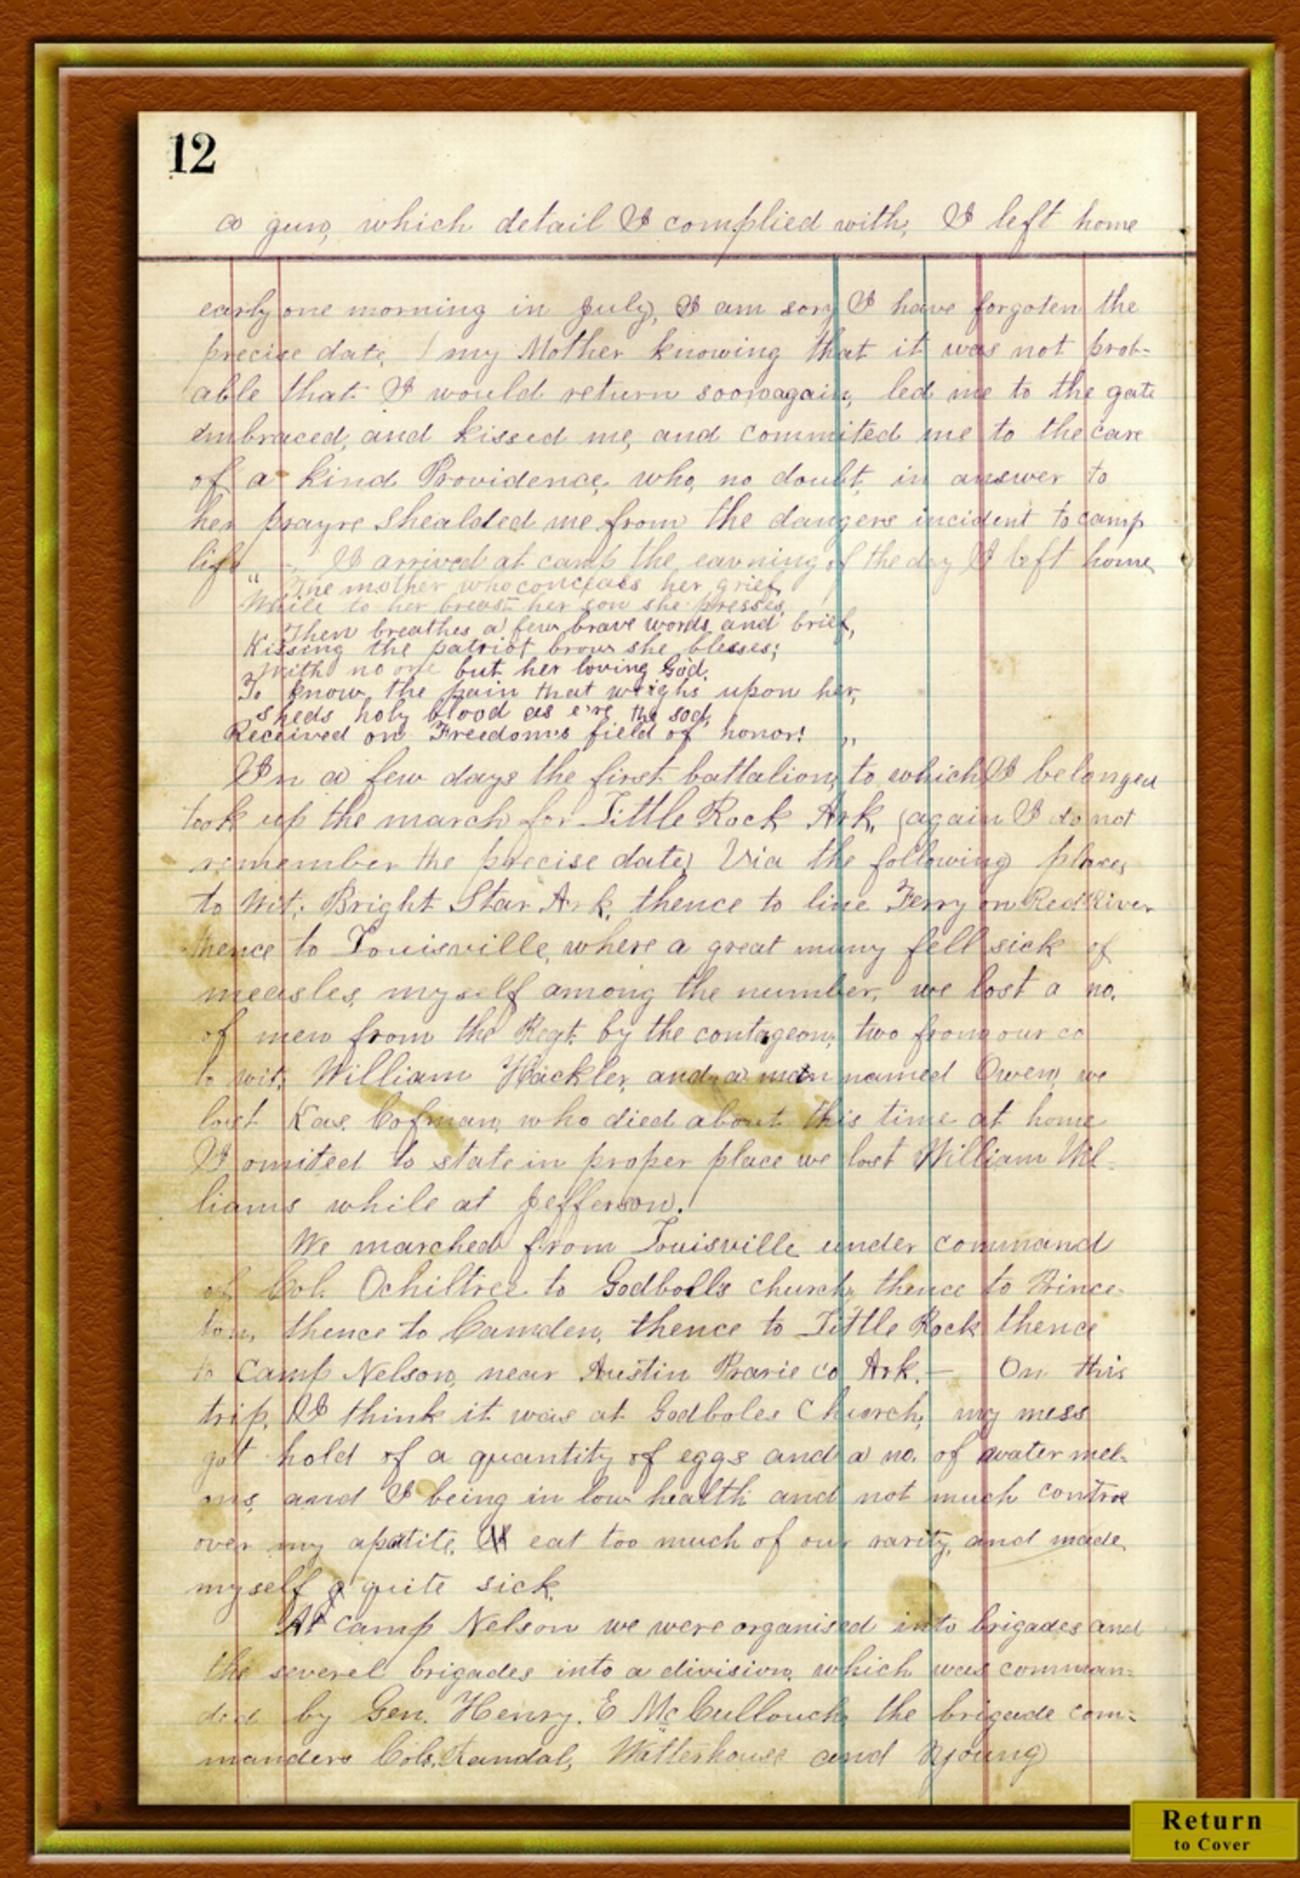 12
a gun, which detail I complied with, I left home
early one morning in July, I am sory I have forgoten the
precise date, my Mother knowing that it was not prob-
able that I would return soon again, led me to the gate
embraced, and kissed me, and commited me to the care
of a kind Providence, who, no doubt, in answer to
her prayre shealded me from the dangers incident to camp
life I arrived at camp the eavning of the day I left home
" The mother who conceals her grief,
While to her breast her son she presses,
Then breathes a few brave words and brief,
Kissing the patriot brow she blesses;
With no one but her loving God,
To know the pain that weighs upon her,
Sheds holy blood as e're the sod,
Received on Freedom's field of honor! "
In a few days the first battalion, to which I belonged
took up the march for Little Rock Ark, (again I do not
remember the precise date) Via the following places
to Wit: Bright Star Ark, thence to line Ferry on Red River
thence to Louisville, where a great many fell sick of
measles, myself among the number, we lost a no.
of men from the Regt. by the contageon, two from our co
to wit; William Hackler, and a man named Owen, we
lost Cofman, who died about this time at home
I omitted to state in proper place we lost William Wil-
liams while at Jefferson.
We marched from Louisville under command
of Col. Ochiltree to Godbolls church, thence to Prince-
ton, thence to Camden, thence to Little Rock thence
to Camp Nelson, near Austin Prarie co Ark. — On this
trip, I think it was at Godboles Church, my mess
got hold of a quantity of eggs and a no. of water mel-
ons, and I being in low health and not much controe
over my apatite, eat too much of our rarity, and made
myself quite sick.
At Camp Nelson we were organised into brigades and
the severel brigades into a division, which was comman-
ded by Gen. Henry. E McCullouch, the brigade com-
manders Cols. Randal, Watterhouse and Young
Return
to Cover